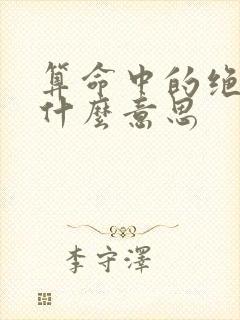 算命中的绝
什麼意思
李守澤